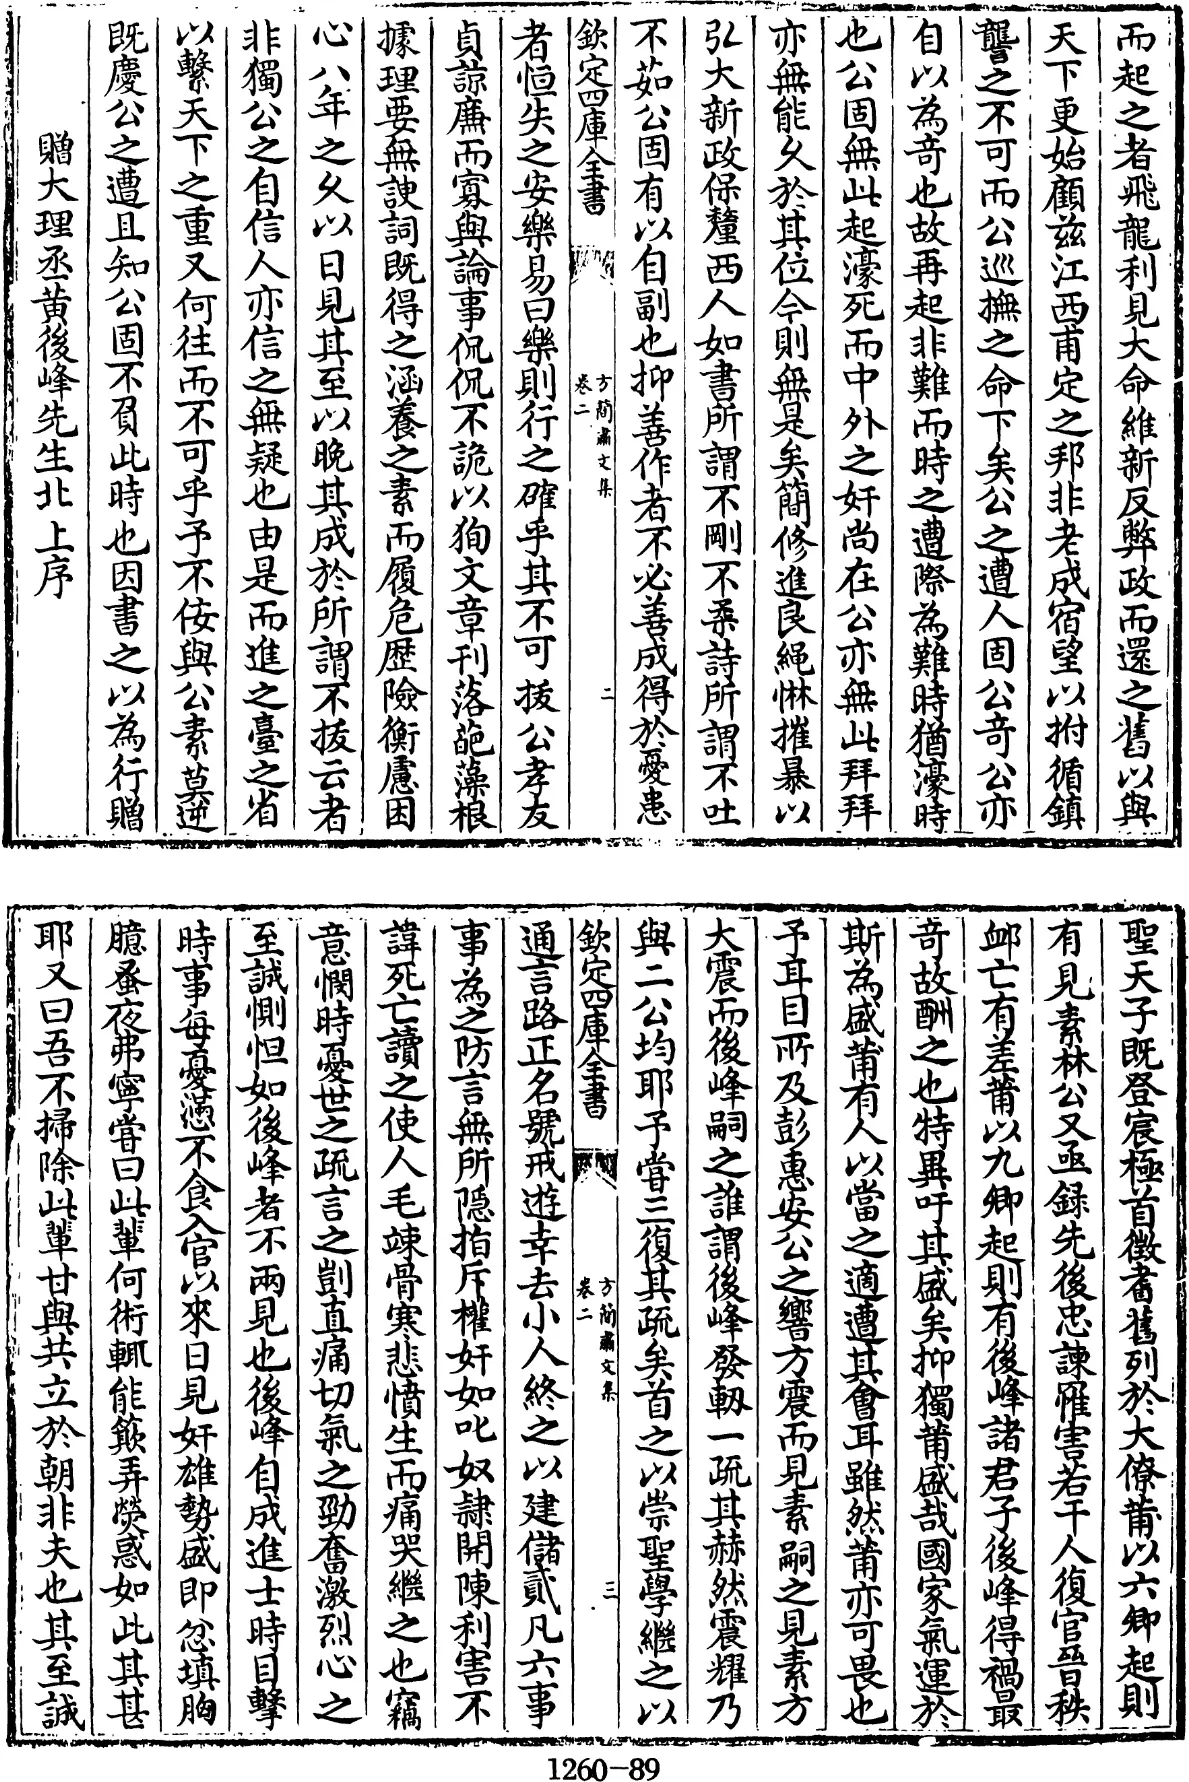 而起之者飛龍利見大命維新反弊政而還之舊以與
天下更始顧兹江西甫定之邦非老成宿望以拊循鎮
讋之不可而公巡撫之命下矣公之遭人固公竒公亦
自以為竒也故再起非難而時之遭際為難時猶濠時
也公固無此起濠死而中外之奸尚在公亦無此拜拜
亦無能久於其位今則無是矣簡修進良繩惏摧暴以
弘大新政保釐西人如書所謂不剛不柔詩所謂不吐
不茹公固有以自副也抑善作者不必善成得於憂患
欽定四庫全書
方簡肅文集
卷二
二
者恒失之安樂易曰樂則行之確乎其不可拔公孝友
貞諒廉而寡與論事侃侃不詭以狥文章刋落葩藻根
據理要無諛詞既得之涵養之素而履危歴險衡慮困
心八年之久以日見其至以晩其成於所謂不拔云者
非獨公之自信人亦信之無疑也由是而進之臺之省
以繫天下之重又何往而不可乎予不佞與公素莫逆
既慶公之遭且知公固不負此時也因書之以為行贈
贈大理丞黄後峰先生北上序
聖天子既登宸極首徴耆舊列於大僚莆以六卿起則
有見素林公又亟録先後忠諫罹害若干人復官晉秩
卹亡有差莆以九卿起則有後峰諸君子後峰得禍最
竒故酬之也特異吁其盛矣抑獨莆盛哉國家氣運於
斯為盛莆有人以當之適遭其會耳雖然莆亦可畏也
予耳目所及彭惠安公之響方震而見素嗣之見素方
大震而後峰嗣之誰謂後峰發軔一疏其赫然震耀乃
與二公均耶予甞三復其疏矣首之以崇聖學繼之以
欽定四庫全書
方簡肅文集
卷二
三
通言路正名號戒遊幸去小人終之以建儲貳凡六事
事為之防言無所隠指斥權奸如叱奴隷開陳利害不
諱死亡讀之使人毛竦骨寒悲憤生而痛哭繼之也竊
意憫時憂世之疏言之剴直痛切氣之勁奮激烈心之
至誠惻怛如後峰者不兩見也後峰自成進士時目擊
時事每憂懣不食入官以來日見奸雄勢盛即忿填胸
臆蚤夜弗寧甞曰此輩何術輒能簸弄熒惑如此其甚
耶又曰吾不掃除此輩甘與共立於朝非夫也其至誠
1260-89